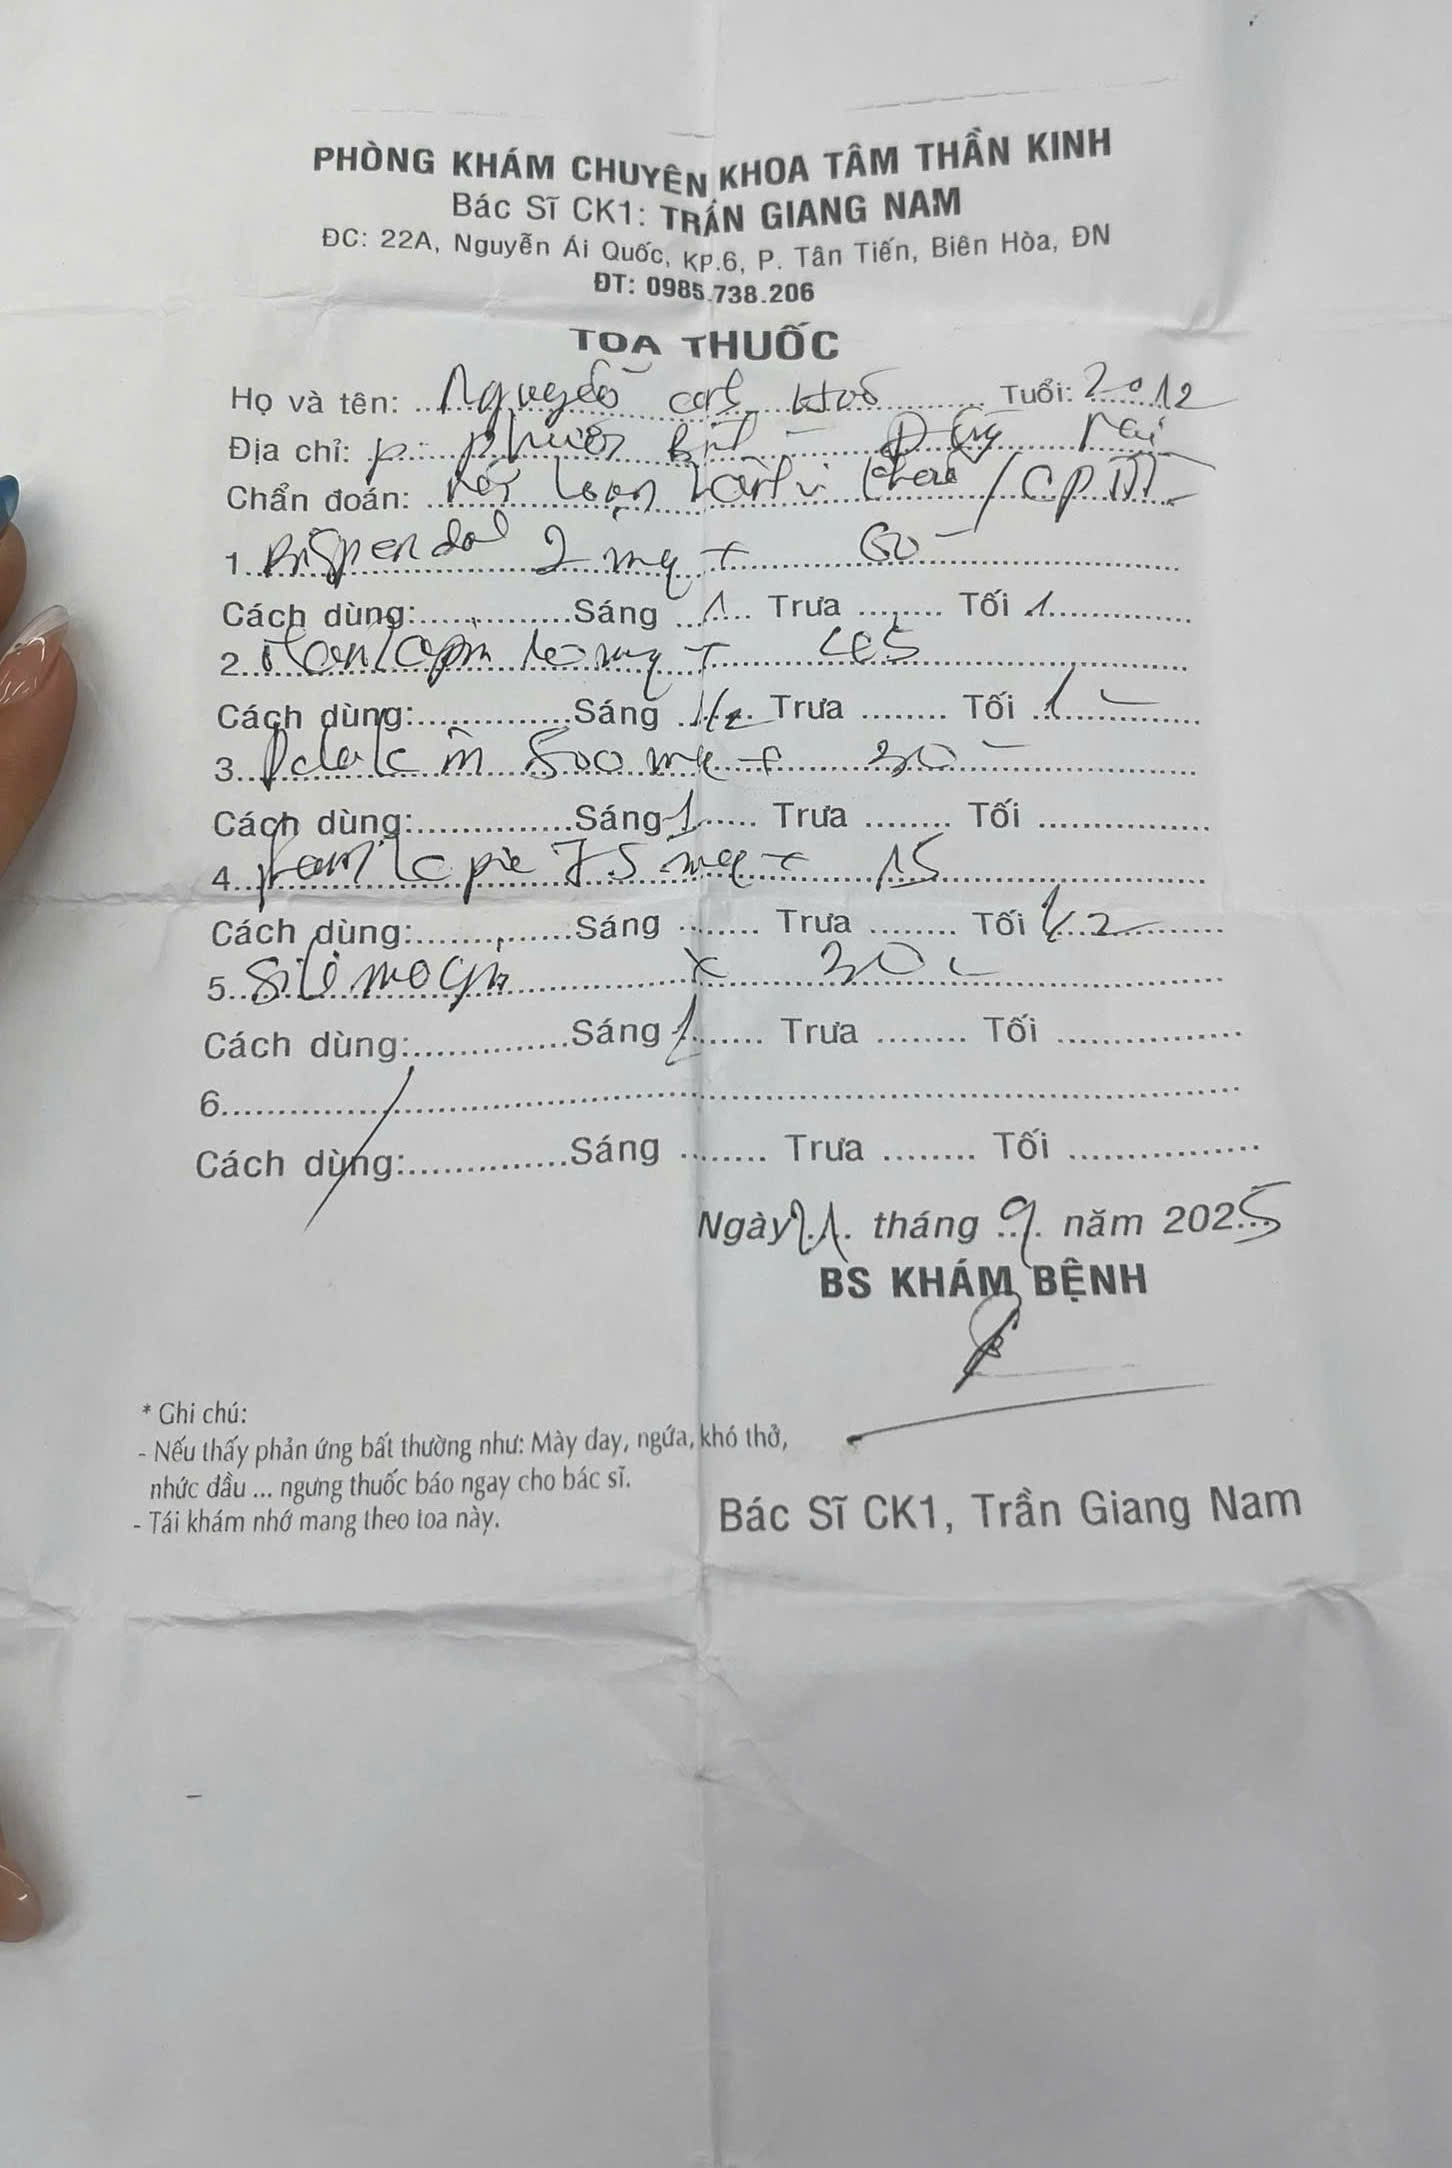 PHÒNG KHÁM CHUYÊN KHOA TÂM THẦN KINH
Bác Sĩ CK1: TRẦN GIANG NAM
ĐC: 22A, Nguyễn Ái Quốc, Kp.6, P. Tân Tiến, Biên Hòa, ĐN
ĐT: 0985.738.206
TOA THUỐC
Họ và tên: Nguyễn Tuổi: 2012
Địa chỉ: p.
Chẩn đoán: loạn
1. Rispendal 2 mg x 60
Cách dùng: Sáng 1 Trưa Tối 1
2. mg x 45
Cách dùng: Sáng 1/2 Trưa Tối 1
3. 500 mg x 30
Cách dùng: Sáng 1 Trưa Tối
4. 7.5 mg x 15
Cách dùng: Sáng Trưa Tối 1/2
5. x 30
Cách dùng: Sáng 1 Trưa Tối
6.
Cách dùng: Sáng Trưa Tối
Ngày 21 tháng 9 năm 2025
BS KHÁM BỆNH
* Ghi chú:
- Nếu thấy phản ứng bất thường như: Mày đay, ngứa, khó thở,
nhức đầu ... ngưng thuốc báo ngay cho bác sĩ.
- Tái khám nhớ mang theo toa này.
Bác Sĩ CK1, Trần Giang Nam